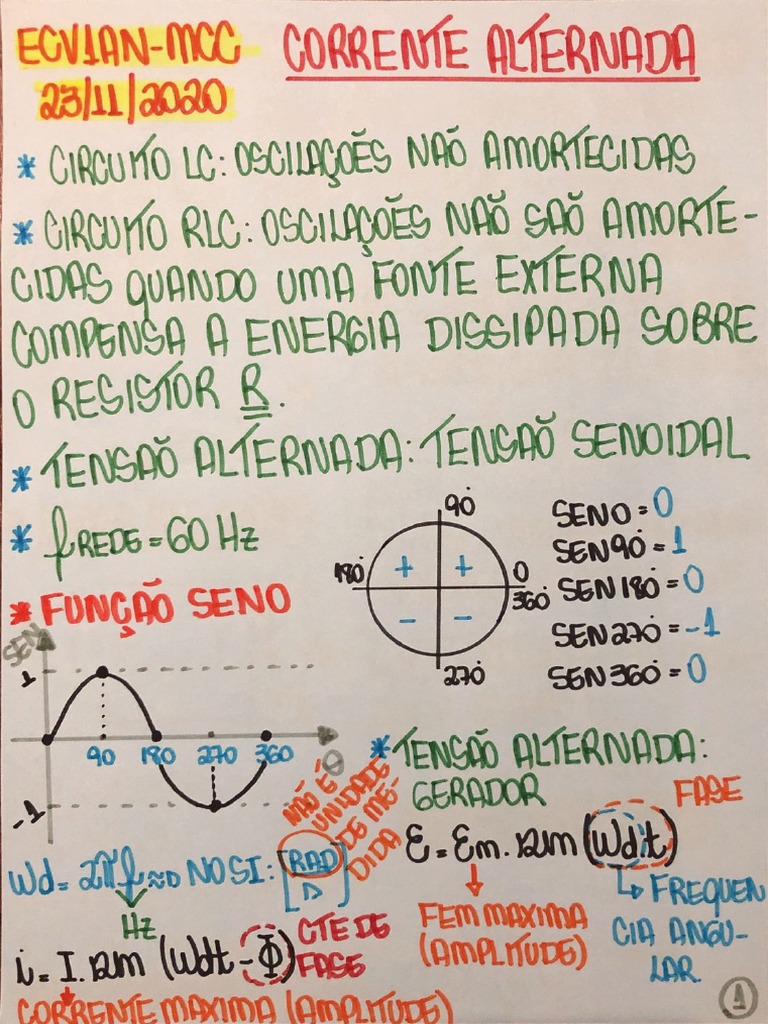 ECV1AN-MCC
23/11/2020
CORRENTE ALTERNADA
* CIRCUITO LC: OSCILAÇOẼS NAÕ AMORTECIDAS
* CIRCUITO RLC: OSCILAÇOẼS NAÕ SAÕ AMORTE-
CIDAS QUANDO UMA FONTE EXTERNA
COMPENSA A ENERGIA DISSIPADA SOBRE
O RESISTOR R.
* TENSAÕ ALTERNADA: TENSAÕ SENOIDAL
* fREDE = 60 Hz
90°
180°
0
360°
270°
+ +
- -
SEN0 = 0
SEN90° = 1
SEN180° = 0
SEN270° = -1
SEN360° = 0
* FUNÇÃO SENO
SEN
1
-1
90 180 270 360
θ
* TENSAÕ ALTERNADA:
GERADOR
FASE
Ɛ = Ɛm. sen (Wd.t)
FEM MAXIMA
(AMPLITUDE)
↳ FREQUEN
CIA ANGU-
LAR
Wd = 2πf ⇒ NO SI: [RAD/s]
NÃO É
UNIDADE
DE ME-
DIDA
Hz
i = I. sen (Wdt - Φ)
CTE DE
FASE
CORRENTE MAXIMA (AMPLITUDE)
1